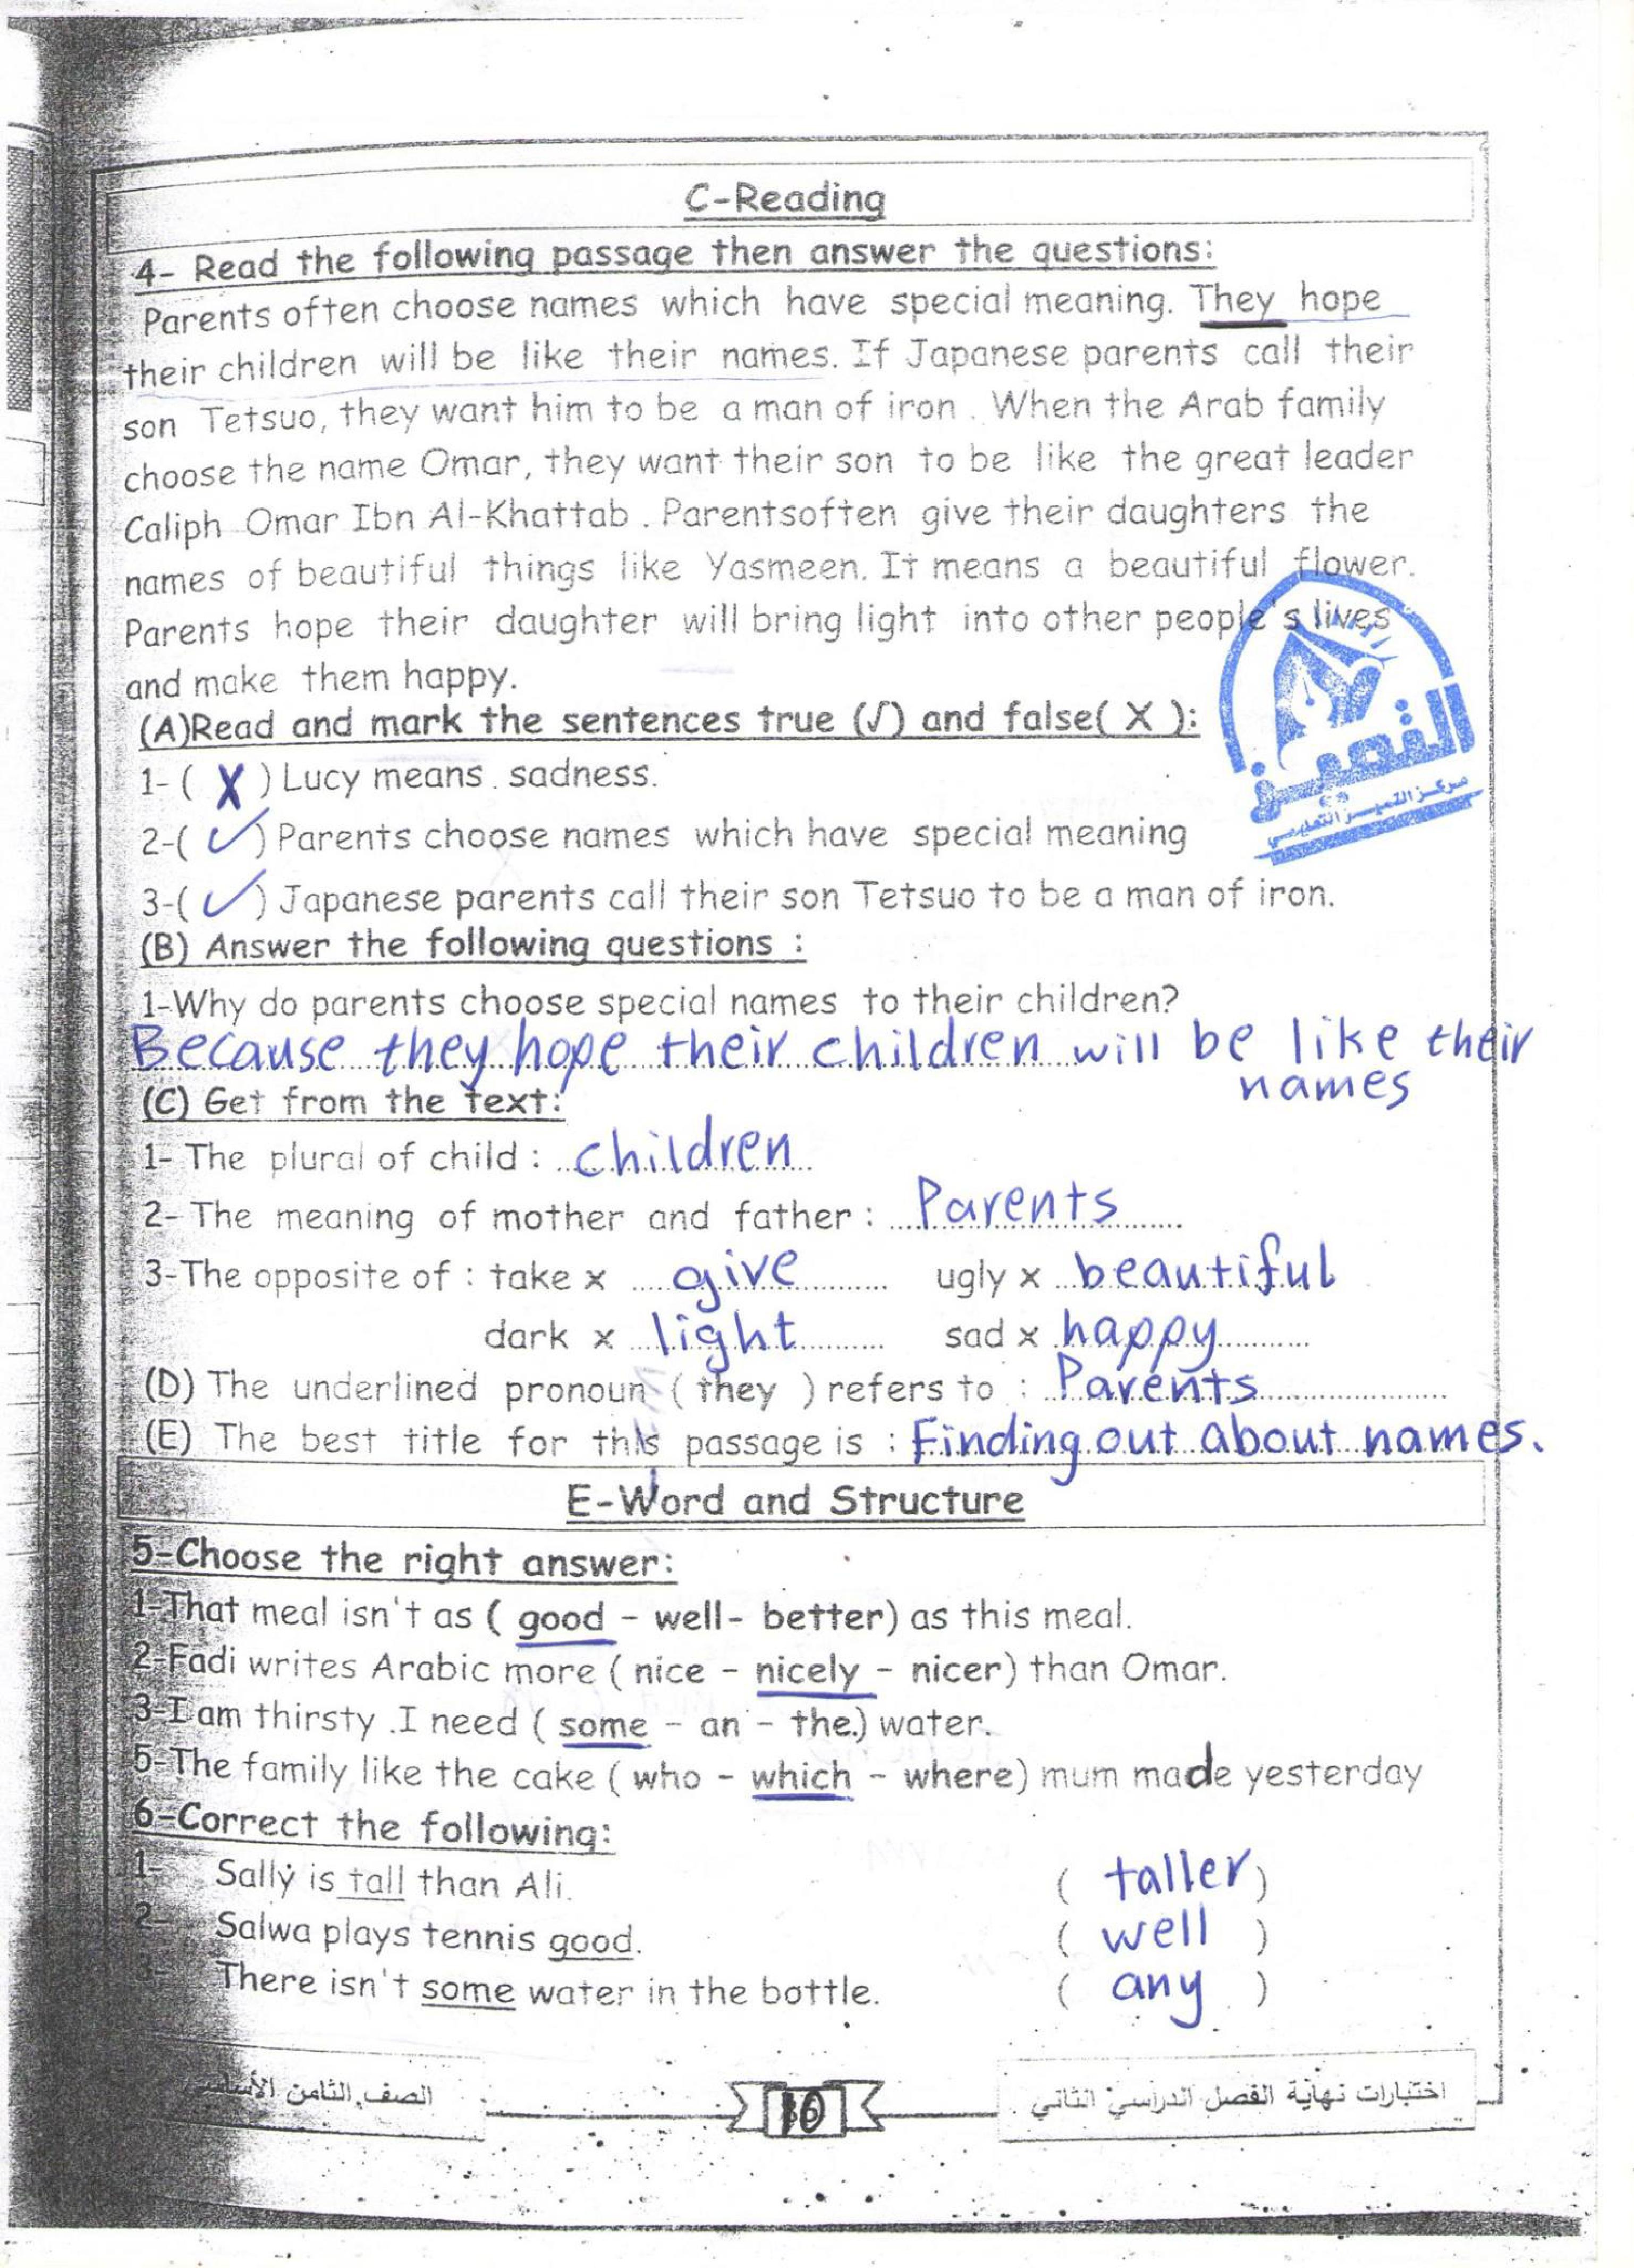 C-Reading
4- Read the following passage then answer the questions:
Parents often choose names which have special meaning. They hope
their children will be like their names. If Japanese parents call their
son Tetsuo, they want him to be a man of iron. When the Arab family
choose the name Omar, they want their son to be like the great leader
Caliph Omar Ibn Al-Khattab. Parentsoften give their daughters the
names of beautiful things like Yasmeen. It means a beautiful flower.
Parents hope their daughter will bring light into other people's lives
and make them happy.
التميز
مركز التميز التعليمي
(A)Read and mark the sentences true (√) and false( X ):
1- ( X ) Lucy means sadness.
2-( ✓ ) Parents choose names which have special meaning
3-( ✓ ) Japanese parents call their son Tetsuo to be a man of iron.
(B) Answer the following questions :
1-Why do parents choose special names to their children?
Because they hope their children will be like their
names
(C) Get from the text:
1- The plural of child : children
2- The meaning of mother and father : Parents
3-The opposite of : take x give ugly x beautiful
dark x light sad x happy
(D) The underlined pronoun ( they ) refers to : Parents
(E) The best title for this passage is : Finding out about names.
E-Word and Structure
5-Choose the right answer:
1-That meal isn't as ( good - well- better) as this meal.
2-Fadi writes Arabic more ( nice - nicely - nicer) than Omar.
3-I am thirsty .I need ( some - an - the.) water.
5-The family like the cake ( who - which - where) mum made yesterday
6-Correct the following:
1- Sally is tall than Ali. ( taller )
2- Salwa plays tennis good. ( well )
3- There isn't some water in the bottle. ( any )
اختبارات نهاية الفصل الدراسي الثاني
الصف الثامن الأساسي